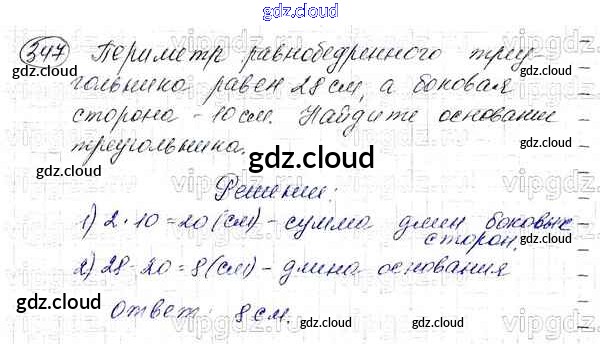 gdz.cloud
347 Периметр равнобедренного треу-
гольника равен 28 см, а боковая
сторона - 10 см. Найдите основании
треугольника.
gdz.cloud
Решении:
1) 2 · 10 = 20 (см) - сумма длин боковых
сторон.
2) 28 - 20 = 8 (см) - длина основания
gdz.cloud
gdz.cloud
Ответ: 8 см.
gdz.cloud